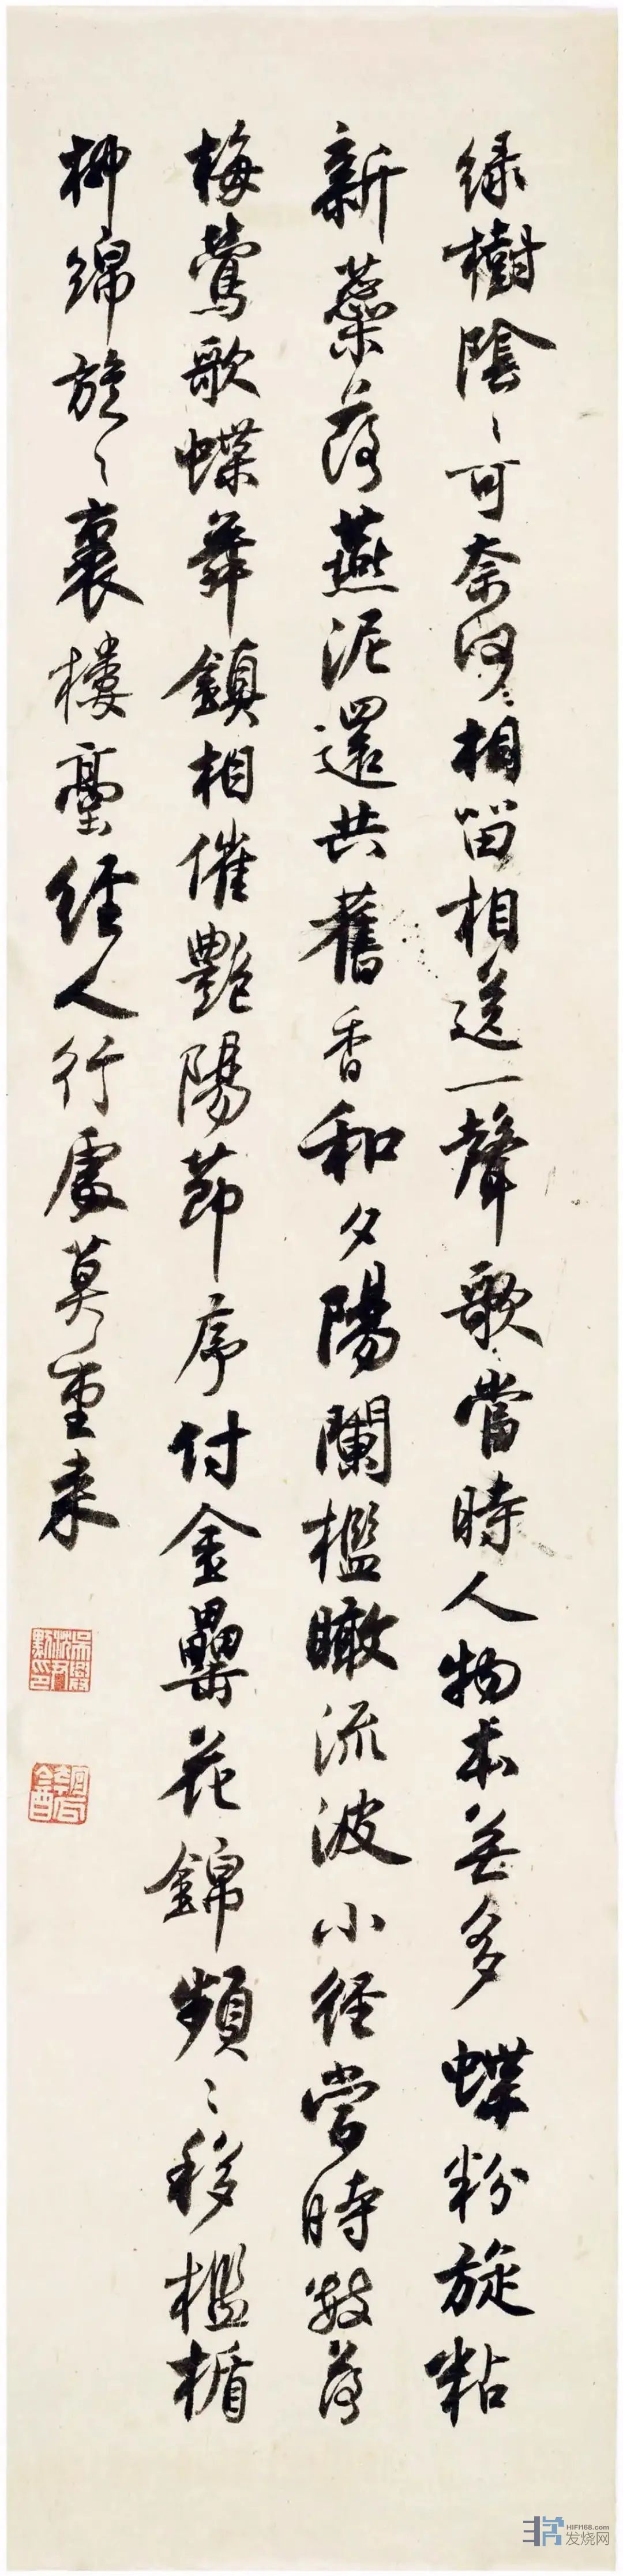 緑樹陰〻可奈何相留相送一聲歌當時人物本無多蝶粉旋粘
新蘂落燕泥還共舊香和夕陽闌檻瞰流波小徑當時數落
梅鶯歌蝶舞鎮相催艷陽節序付金罍花錦頻〻移檻楯
柳綿旋〻裹樓臺經人行處莫重来
HIFI168.com
发烧网